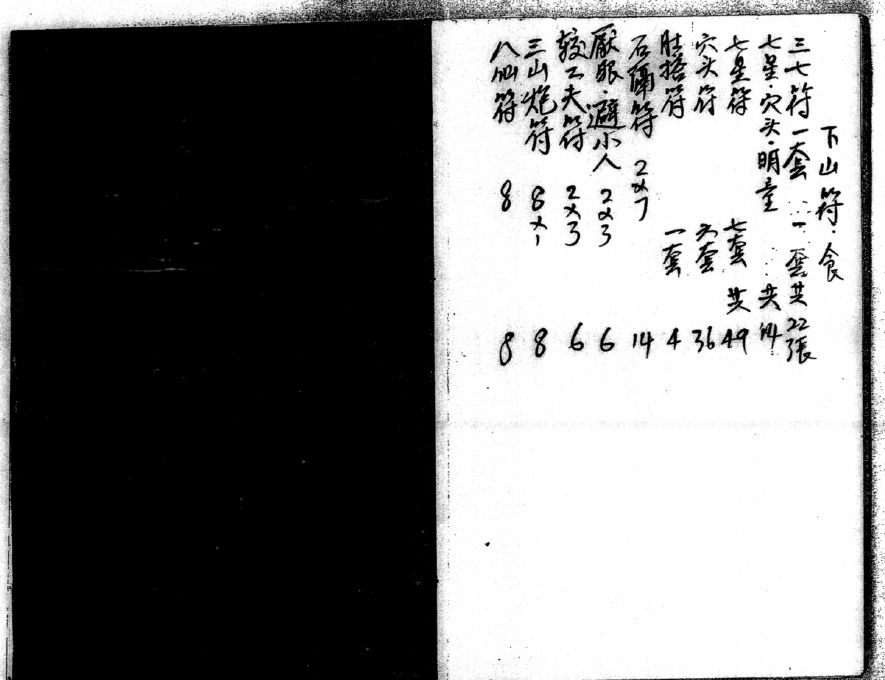 下山符·食
三七符一套 一套共22張
七星·穴头·明堂 共14
七星符 七套 共49
穴头符 六套 36
肚搭符 一套 4
石隔符 2×7 14
厭眼·避小人 2×3 6
较工夫符 2×3 6
三山炮符 8×1 8
八仙符 8 8